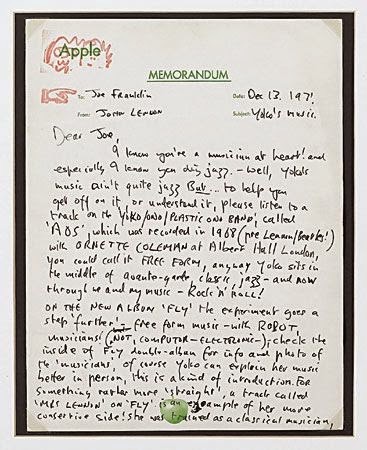 Apple
MEMORANDUM
To: Joe Franklin Date: Dec 13. 1971
From: John Lennon Subject: Yoko's music.
Dear Joe,
I know you're a musician at heart! and
especially I know you dig jazz. - well, Yoko's
music ain't quite jazz But... to help you
get off on it, or understand it, please listen to a
track on the YOKO/ONO/PLASTIC ONO BAND, called
'AOS', which was recorded in 1968 (pre Lennon/Beatles!)
with ORNETTE COLEMAN at Albert Hall London,
you could call it FREE FORM, anyway Yoko sits in
the middle of avante-garde, classic, jazz - and now
through me and my music - Rock 'N' ROLL!
ON THE NEW ALBUM 'FLY' the experiment goes a
step further! - free form music - with ROBOT,
musicians! (NOT COMPUTOR - ELECTRONIC -); check the
inside of Fly double-album for info and photo of
the 'musicians', of course Yoko can explain her music
better in person, this is a kind of introduction. For
something rather more 'straight', a track called
'MRS LENNON' ON 'FLY' is an example of her more
conservative side! She was trained as a classical musician,